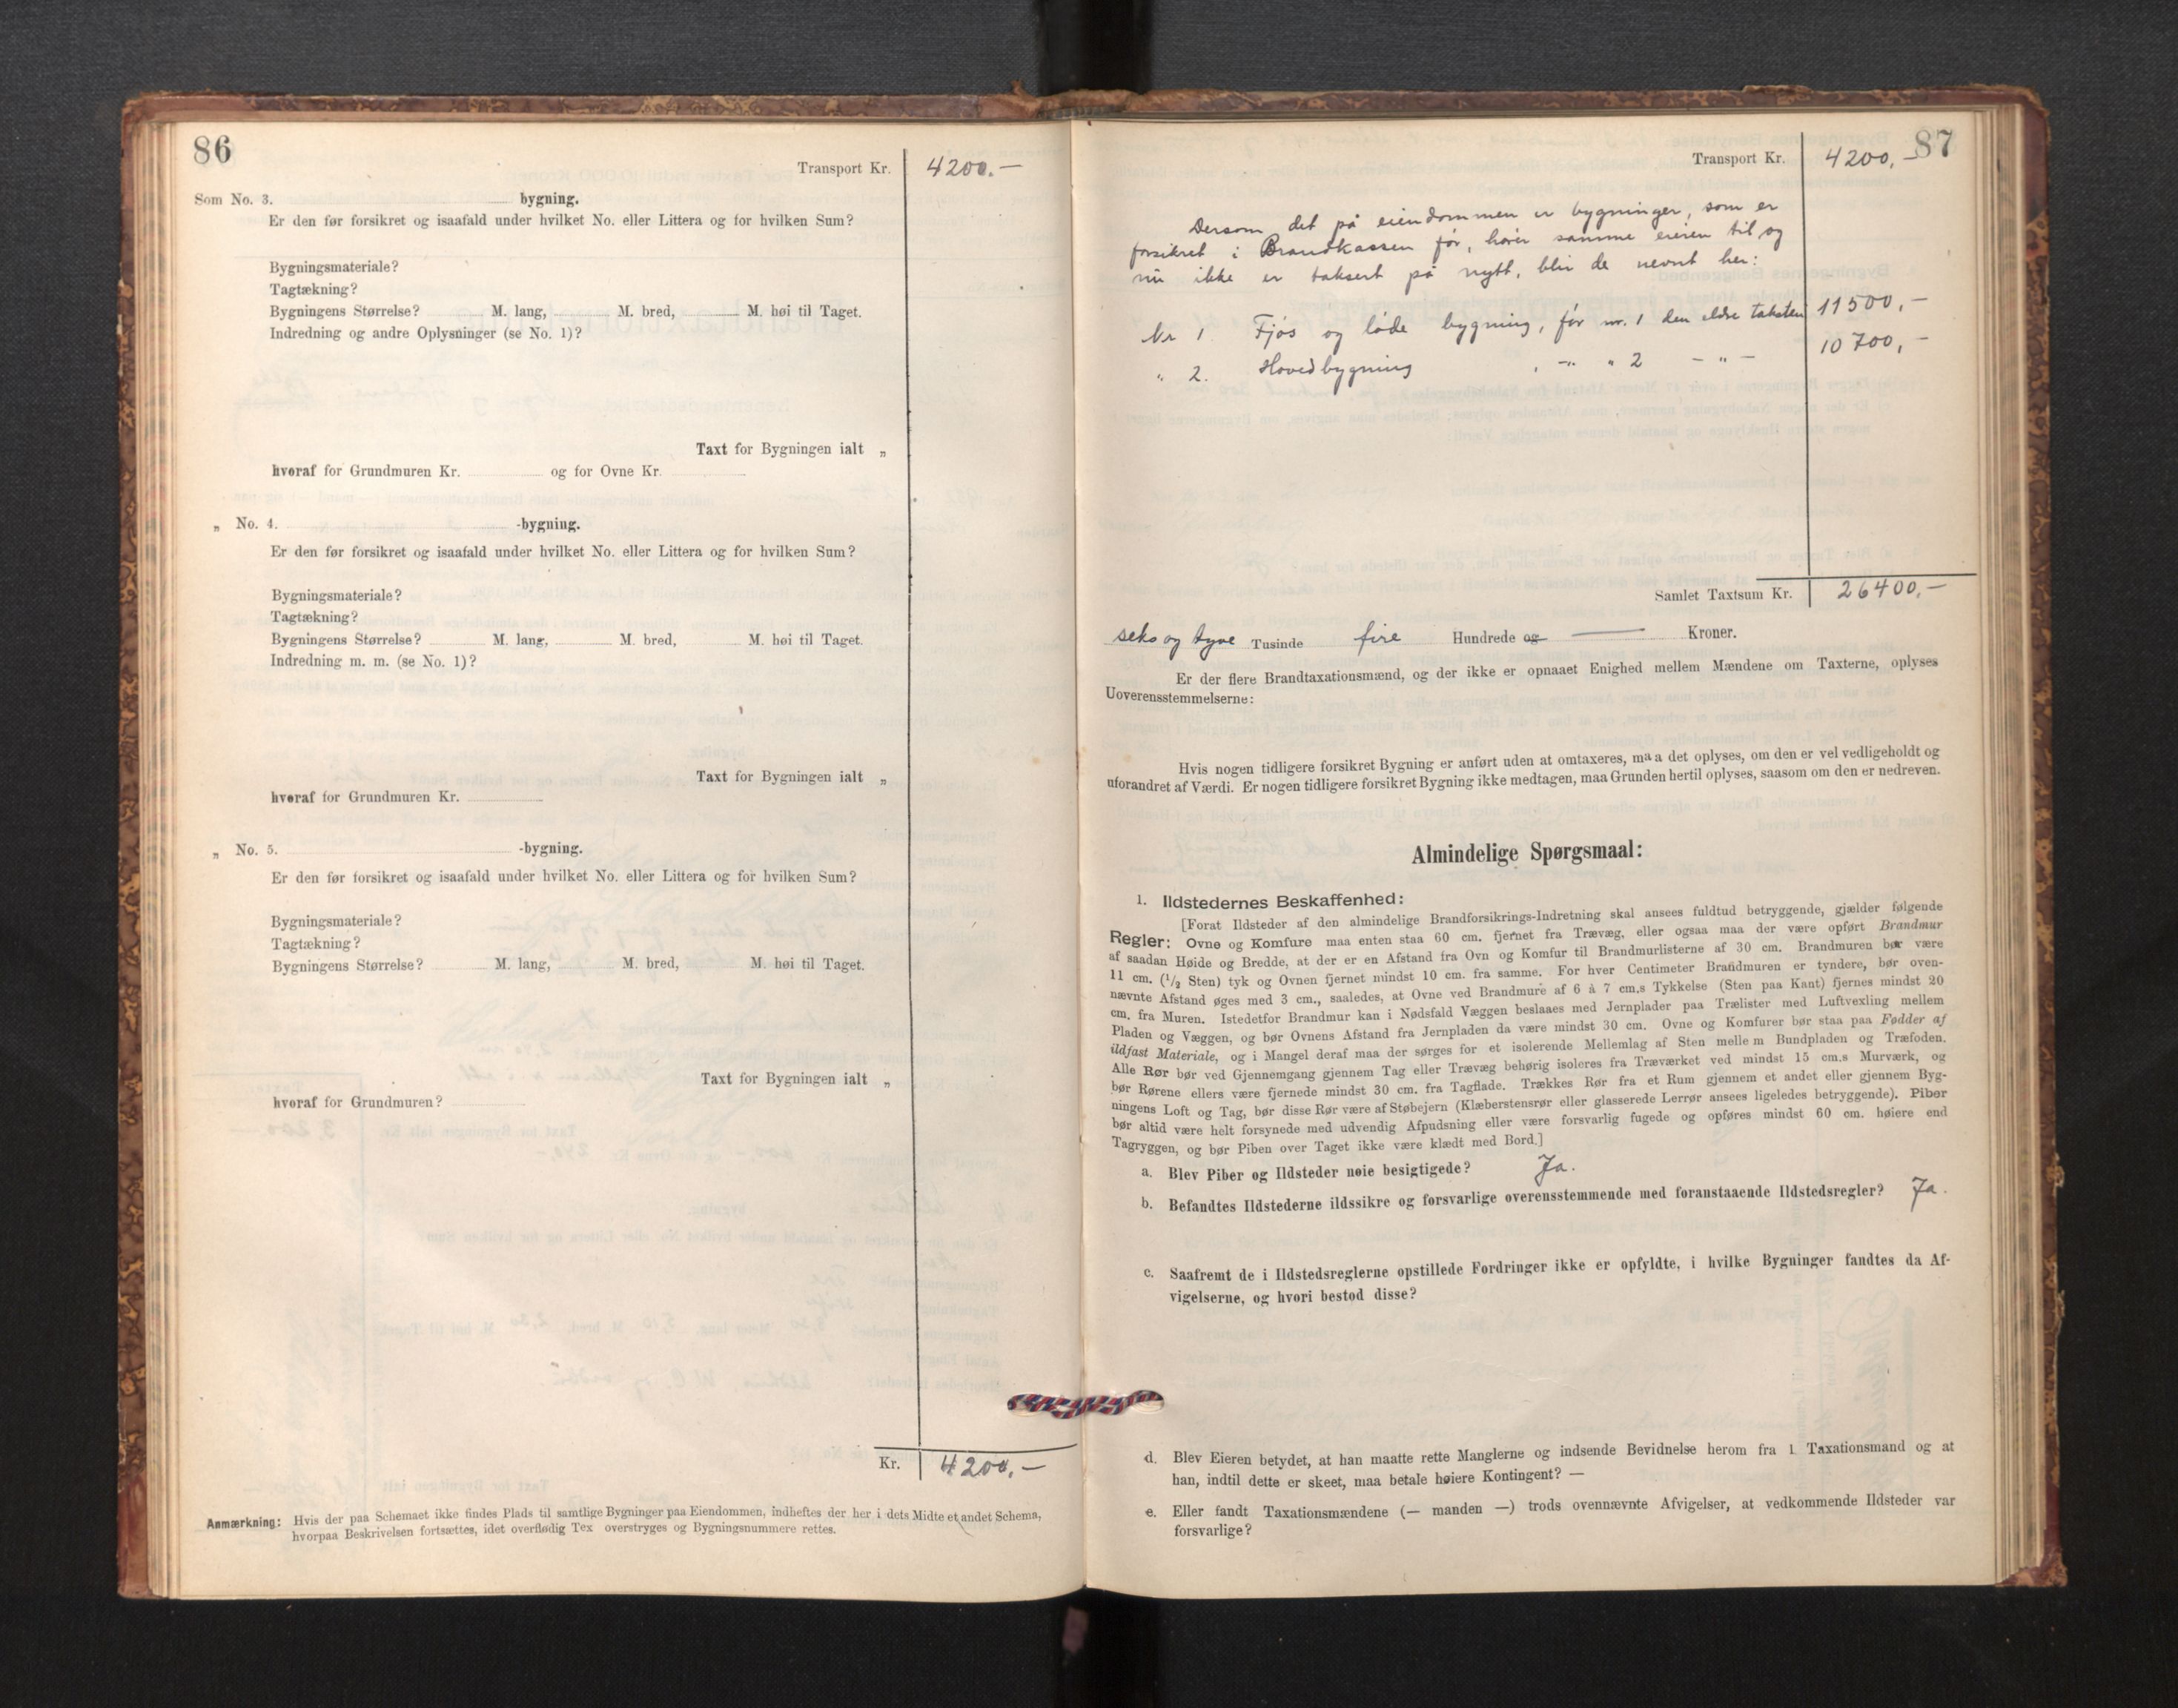 86
Transport Kr. 4200.-
Som No. 3. bygning.
Er den før forsikret og isaafald under hvilket No. eller Littera og for hvilken Sum?
Bygningsmateriale?
Tagtækning?
Bygningens Størrelse? M. lang, M. bred, M. høi til Taget.
Indredning og andre Oplysninger (se No. 1)?
Taxt for Bygningen ialt „
hvoraf for Grundmuren Kr. og for Ovne Kr.
„ No. 4. -bygning.
Er den før forsikret og isaafald under hvilket No. eller Littera og for hvilken Sum?
Bygningsmateriale?
Tagtækning?
Bygningens Størrelse? M. lang, M. bred, M. høi til Taget.
Indredning m. m. (se No. 1)?
Taxt for Bygningen ialt „
hvoraf for Grundmuren Kr.
„ No. 5. -bygning.
Er den før forsikret og isaafald under hvilket No. eller Littera og for hvilken Sum?
Bygningsmateriale?
Tagtækning?
Bygningens Størrelse? M. lang, M. bred, M. høi til Taget.
Taxt for Bygningen ialt „
hvoraf for Grundmuren?
Kr. 4200,-
Anmærkning: Hvis der paa Schemaet ikke findes Plads til samtlige Bygninger paa Eiendommen, indheftes der her i dets Midte et andet Schema,
hvorpaa Beskrivelsen fortsættes, idet overflødig Tex overstryges og Bygningsnummere rettes.
87
Transport Kr. 4200,-
Dersom det på eiendommen er bygninger, som er
forsikret i Brandkassen før, hører samme eieren til og
nu ikke er taksert på nytt, blir de nevnt her:
Nr 1 Fjøs og løde bygning, før nr. 1 den eldre taksten 11500,-
" 2. Hovedbygning , -"- " 2 - " - 10700,-
Samlet Taxtsum Kr. 26400,-
seks og tyve Tusinde fire Hundrede og — Kroner.
Er der flere Brandtaxationsmænd, og der ikke er opnaaet Enighed mellem Mændene om Taxterne, oplyses
Uoverensstemmelserne:
Hvis nogen tidligere forsikret Bygning er anført uden at omtaxeres, maa det oplyses, om den er vel vedligeholdt og
uforandret af Værdi. Er nogen tidligere forsikret Bygning ikke medtagen, maa Grunden hertil oplyses, saasom om den er nedreven.
Almindelige Spørgsmaal:
1. Ildstedernes Beskaffenhed:
[Forat Ildsteder af den almindelige Brandforsikrings-Indretning skal ansees fuldtud betryggende, gjælder følgende
Regler: Ovne og Komfure maa enten staa 60 cm. fjernet fra Trævæg, eller ogsaa maa der være opført Brandmur
af saadan Høide og Bredde, at der er en Afstand fra Ovn og Komfur til Brandmurlisterne af 30 cm. Brandmuren bør være
11 cm. (1/2 Sten) tyk og Ovnen fjernet mindst 10 cm. fra samme. For hver Centimeter Brandmuren er tyndere, bør oven-
nævnte Afstand øges med 3 cm., saaledes, at Ovne ved Brandmure af 6 à 7 cm.s Tykkelse (Sten paa Kant) fjernes mindst 20
cm. fra Muren. Istedetfor Brandmur kan i Nødsfald Væggen beslaaes med Jernplader paa Trælister med Luftvexling mellem
Pladen og Væggen, og bør Ovnens Afstand fra Jernpladen da være mindst 30 cm. Ovne og Komfurer bør staa paa Fødder af
ildfast Materiale, og i Mangel deraf maa der sørges for et isolerende Mellemlag af Sten mellem Bundpladen og Træfoden.
Alle Rør bør ved Gjennemgang gjennem Tag eller Trævæg behørig isoleres fra Træværket ved mindst 15 cm.s Murværk, og
bør Rørene ellers være fjernede mindst 30 cm. fra Tagflade. Trækkes Rør fra et Rum gjennem et andet eller gjennem Byg-
ningens Loft og Tag, bør disse Rør være af Støbejern (Klæberstensrør eller glasserede Lerrør ansees ligeledes betryggende). Piber
bør altid være helt forsynede med udvendig Afpudsning eller være forsvarlig fugede og opføres mindst 60 cm. høiere end
Tagryggen, og bør Piben over Taget ikke være klædt med Bord.]
a. Blev Piber og Ildsteder nøie besigtigede? Ja.
b. Befandtes Ildstederne ildssikre og forsvarlige overensstemmende med foranstaaende Ildstedsregler? Ja.
c. Saafremt de i Ildstedsreglerne opstillede Fordringer ikke er opfyldte, i hvilke Bygninger fandtes da Af-
vigelserne, og hvori bestod disse?
d. Blev Eieren betydet, at han maatte rette Manglerne og indsende Bevidnelse herom fra 1 Taxationsmand og at
han, indtil dette er skeet, maa betale høiere Kontingent? —
e. Eller fandt Taxationsmændene (— manden —) trods ovennævnte Afvigelser, at vedkommende Ildsteder var
forsvarlige?